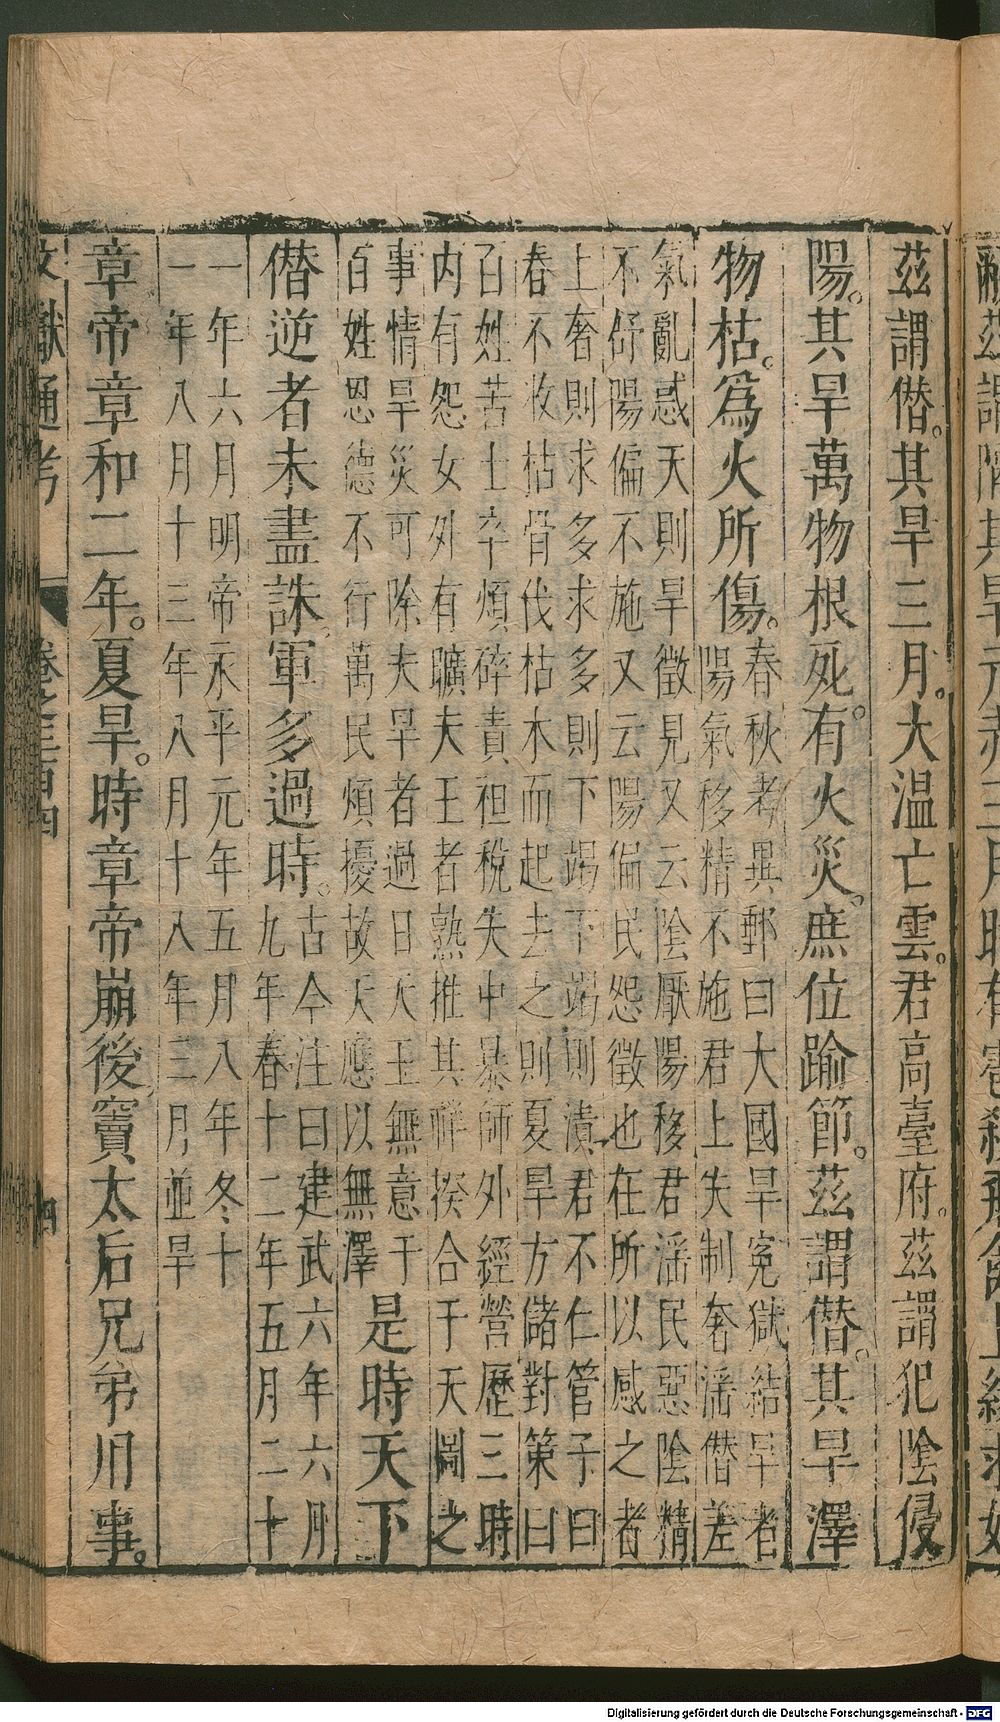 茲謂僭。其旱三月。大温亡雲。君高臺府。茲謂犯陰侵
陽。其旱萬物根死。有火災。庶位踰節。茲謂僭。其旱澤
物枯。爲火所傷。春秋考異郵曰大國旱寃獄結旱者
陽氣移精不施君上失制奢滛僭差
氣亂感天則旱徵見又云陰厭陽移君滛民惡陰精
不舒陽偏不施又云陽偏民怨徵也在所以感之者
上奢則求多求多則下竭下竭則潰君不仁管子曰
春不收枯骨伐枯木而起去之則夏旱方儲對策曰
百姓苦士卒煩碎責租稅失中暴師外經營歷三時
内有怨女外有曠夫王者熟推其祥揆合于天圖之
事情旱災可除夫旱者過日天王無意于
百姓恩德不行萬民煩擾故天應以無澤是時天下
僭逆者未盡誅。軍多過時。古今注曰建武六年六月
九年春十二年五月二十
一年六月明帝永平元年五月八年冬十
一年八月十三年八月十八年三月並旱
章帝章和二年。夏旱。時章帝崩後竇太后兄弟用事。
文獻通考 卷之三百四 四
Digitalisierung gefördert durch die Deutsche Forschungsgemeinschaft - DFG